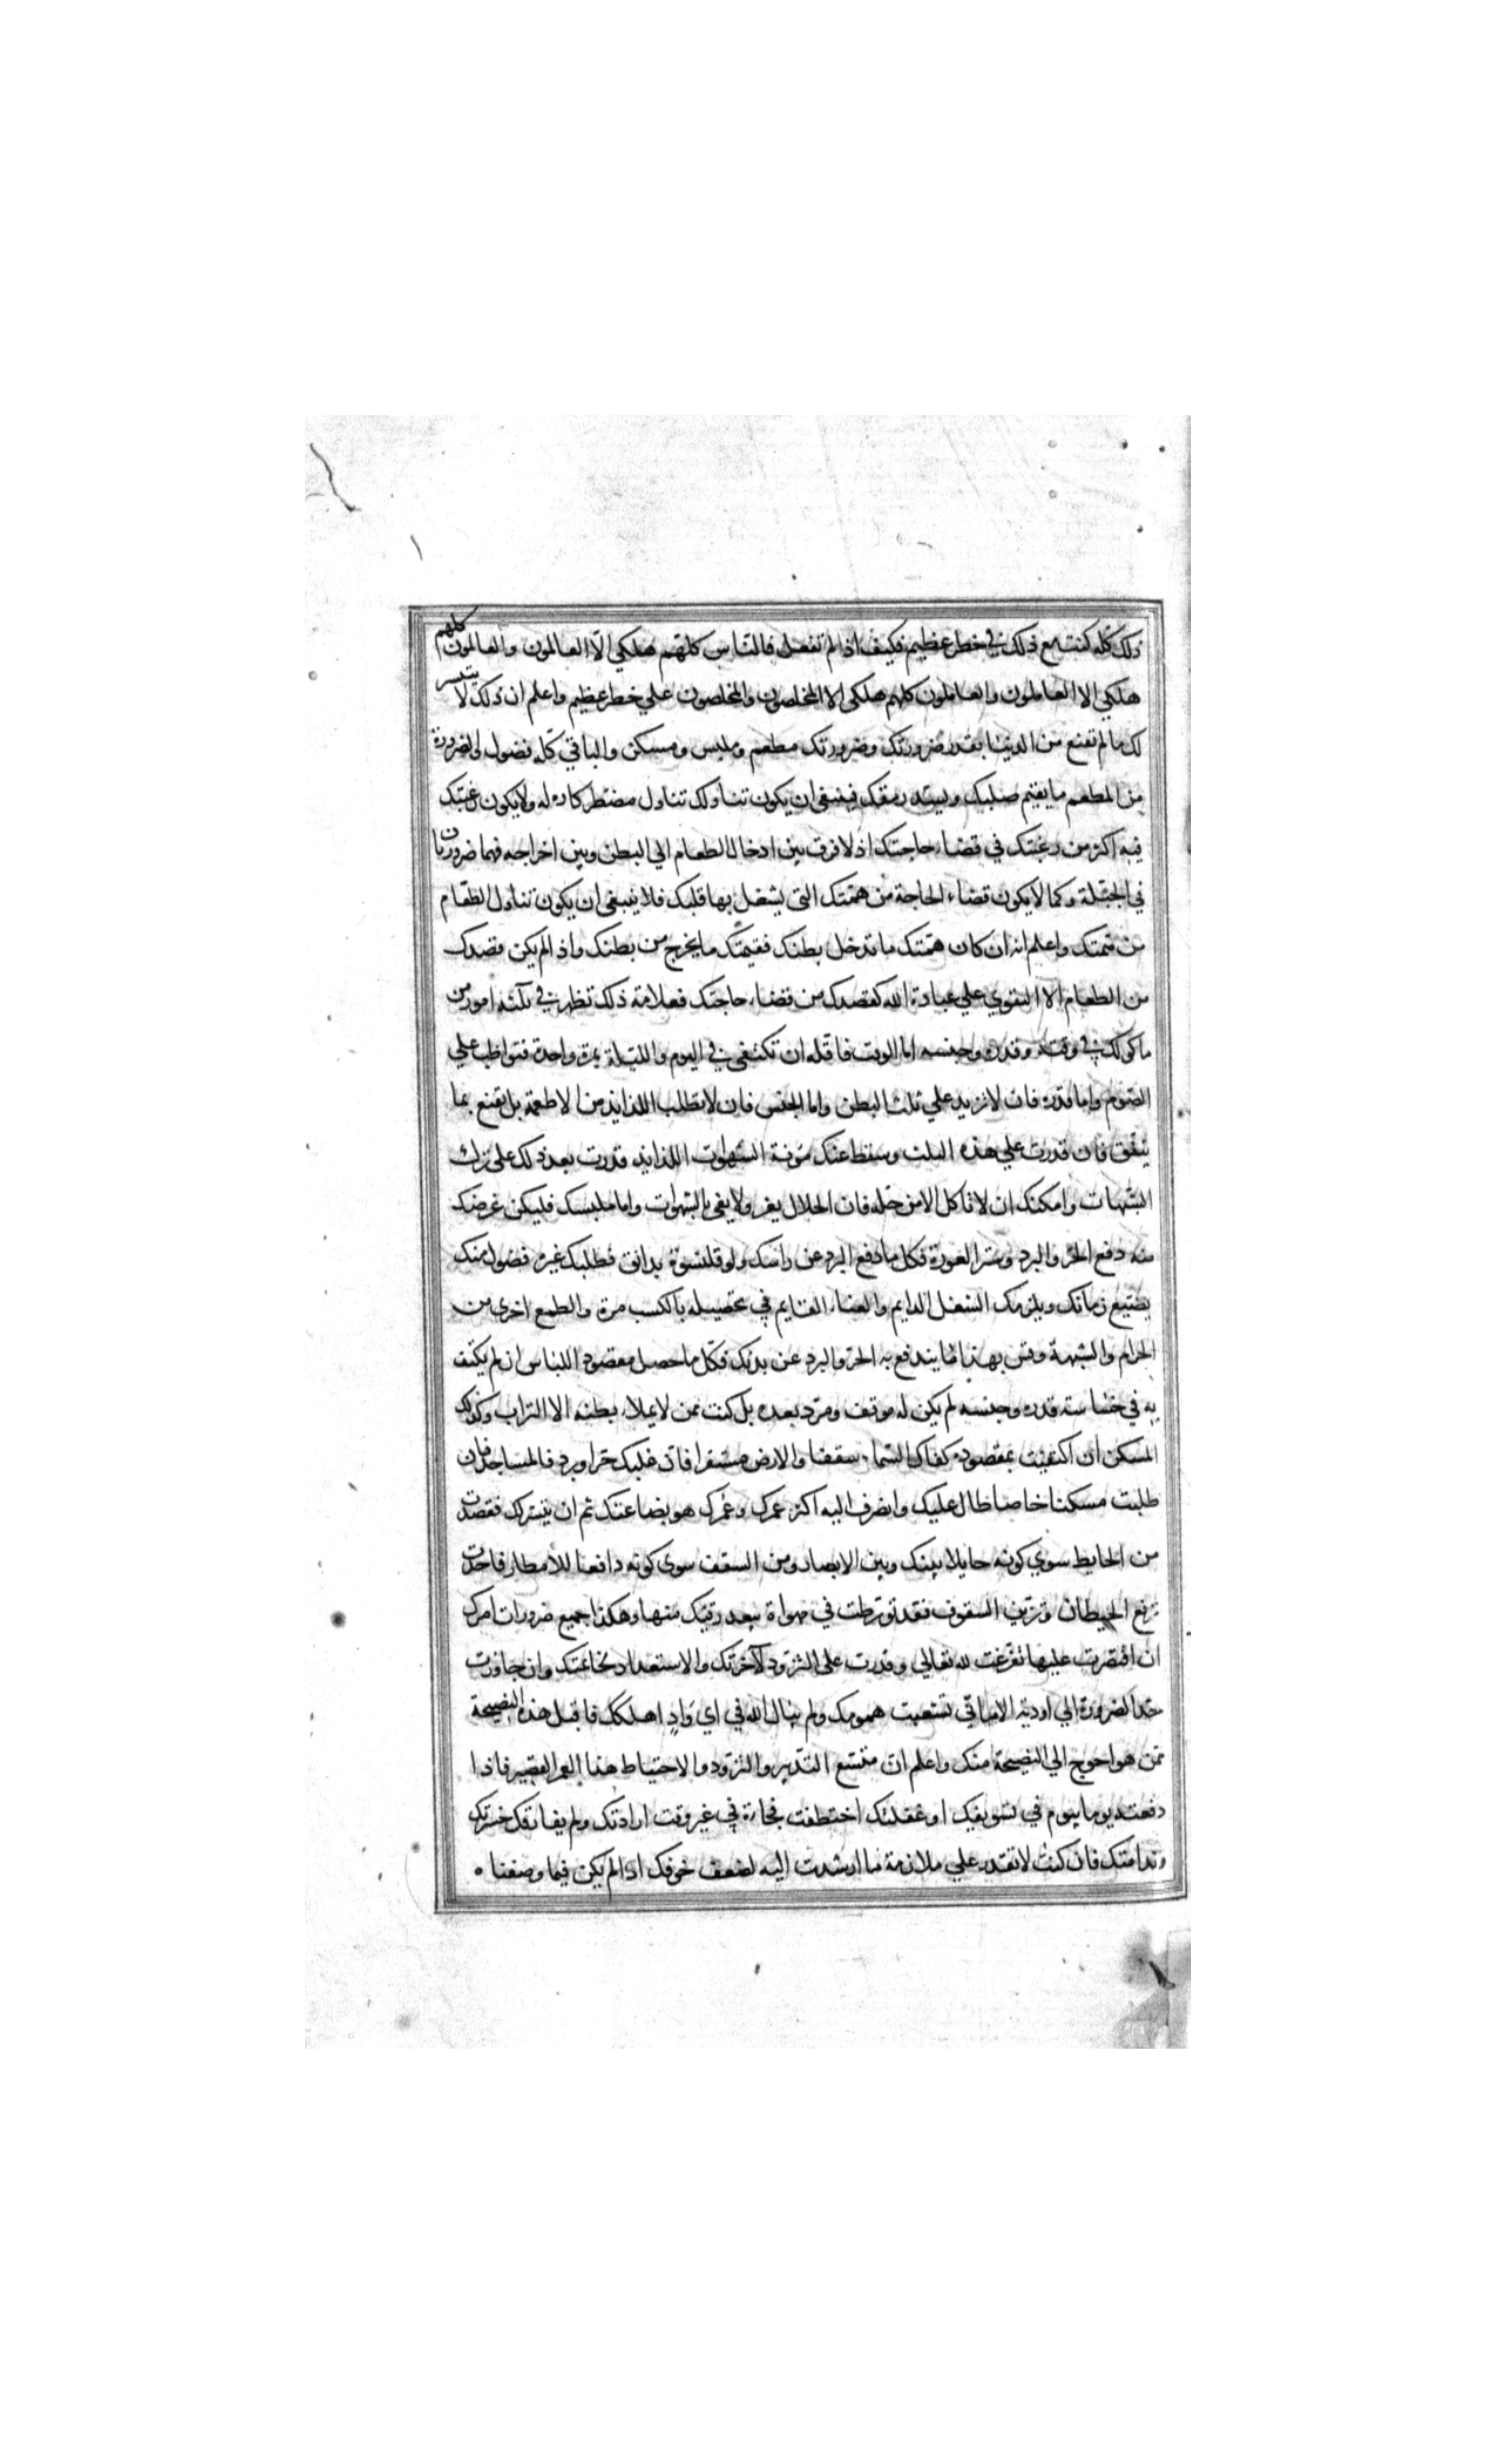 ذلك كله كنت مع ذلك في خطر عظيم فكيف اذا لم تفعل فالناس كلهم هلكي الا العالمون والعالمون كلهم
هلكي الا العاملون والعاملون كلهم هلكي الا المخلصون والمخلصون علي خطر عظيم واعلم ان ذلك لا يتيسر
لك ما لم تقنع من الدنيا بقدر ضرورتك وضرورتك مطعم وملبس ومسكن والباقي كله فضول والضرورة
من المطعم ما يقيم صلبك ويسد رمقك فينبغي ان يكون تناولك تناول مضطر كاره له ولا يكون رغبتك
فيه اكثر من رغبتك في قضاء حاجتك اذ لا فرق بين ادخال الطعام الي البطن وبين اخراجه فهما ضروريتان
في الجبلة وكما لا يكون قضاء الحاجة من همتك التي يشغل بها قلبك فلا ينبغي ان يكون تناول الطعام
من همتك واعلم انه ان كان همتك ما تدخل بطنك فقيمتك ما يخرج من بطنك واذا لم يكن قصدك
من الطعام الا التقوي علي عبادة الله كقصدك من قضاء حاجتك فعلامة ذلك تظهر في ثلثة امور من
ماكولك في وقته وقدره وجنسه اما الوقت فاقله ان تكتفي في اليوم والليلة بمرة واحدة فتواظب علي
الصوم واما قدره فان لا تزيد علي ثلث البطن واما الجنس فان لا تطلب اللذايذ من الاطعمة بل تقنع بما
يتفق فان قدرت علي هذه الثلث وسقط عنك مؤنة الشهوات اللذايذ قدرت بعد ذلك علي ترك
الشبهات وامكنك ان لا تاكل الا من حله فان الحلال يعز ولا يفي بالشهوات واما ملبسك فليكن غرضك
منه دفع الحر والبرد وستر العورة فكل ما دفع البرد عن راسك ولو قلنسوة بدانق فطلبك غيره فضول منك
يضيع زمانك ويلزمك الشغل الدايم والعناء القايم في تحصيله بالكسب مرة والطمع اخري من
الحرام والشبهة وقس بهذا ما يندفع به الحر والبرد عن بدنك فكل ما حصل مقصود اللباس ان لم يكتف
به في خساسة قدره وجنسه لم يكن له موقف ومرد بعده بل كنت ممن لا يملاء بطنه الا التراب وكذلك
المسكن ان اكتفيت بمقصوده كفاك السماء سقفا والارض مستقرا فان غلبك حر او برد فالمساجد فان
طلبت مسكنا خاصا طال عليك وانصرف اليه اكثر عمرك وعمرك هو بضاعتك ثم ان تيسر لك فقصدت
من الحايط سوي كونه حايلا بينك وبين الابصار ومن السقف سوي كونه دافعا للامطار فاخذت
ترفع الحيطان وتزين السقوف فقد تورطت في مهواة يبعد رقيك منها وهكذا جميع ضرورات امرك
ان اقتصرت عليها تفرغت لله تعالي وقدرت علي التزود لآخرتك والاستعداد لخاتمتك وان جاوزت
حد الضرورة الي اودية الاماني تشعبت همومك ولم يبال الله في اي وادٍ اهلكك فاقبل هذه النصيحة
ممن هو احوج الي النصيحة منك واعلم ان متسع التدبير والتزود والاحتياط هذا العمر القصير فاذا
دفعته يوما بيوم في تسويفك او غفلتك اختطفت فجاءة في غير وقت ارادتك ولم يفارقك حسرتك
وندامتك فان كنت لا تقدر علي ملازمة ما ارشدت اليه لضعف خوفك اذا لم يكن فيما وصفنا ه